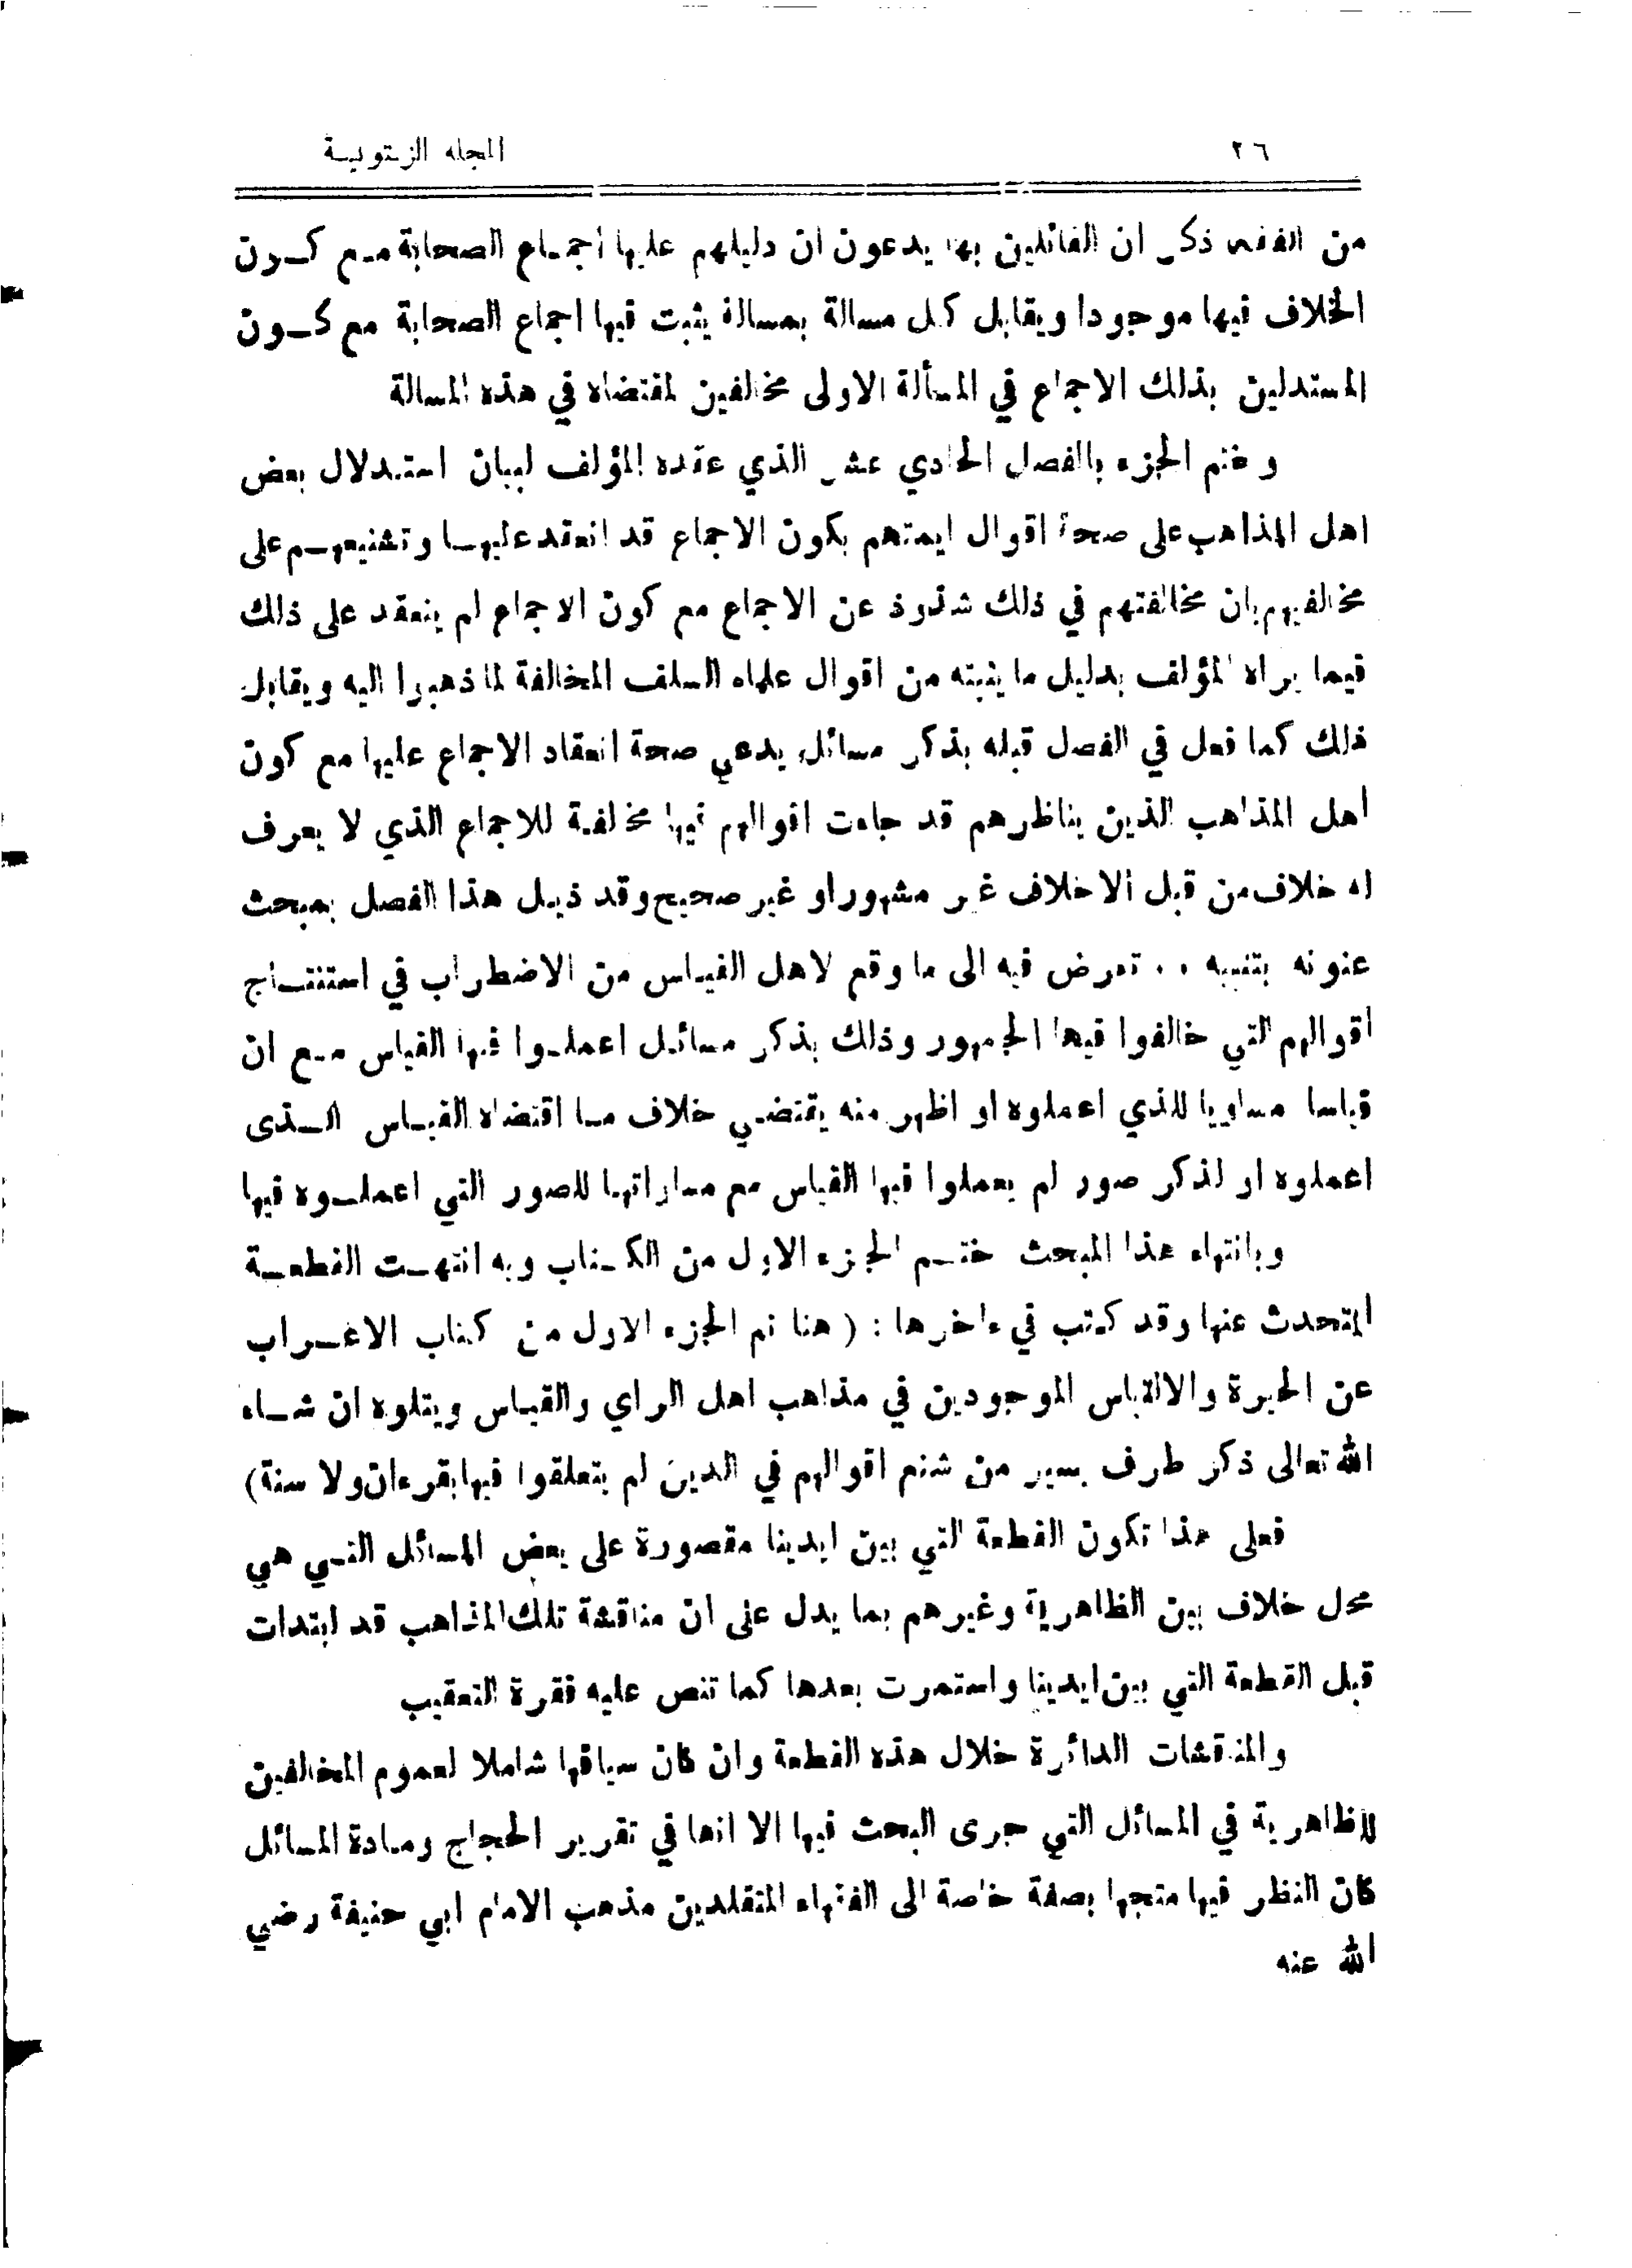 ٢٦
المجلة الزيتونية
من الفقه ذكر ان القائلين بها يدعون ان دليلهم عليها اجماع الصحابة مع كون
الخلاف فيها موجودا ويقابل كل مسالة بمسالة يثبت فيها اجماع الصحابة مع كون
المستدلين بذلك الاجماع في المسألة الاولى مخالفين لمقتضاه في هذه المسالة
وختم الجزء بالفصل الحادي عشر الذي عقده المؤلف لبيان استدلال بعض
اهل المذاهب على صحة اقوال ايمتهم بكون الاجماع قد انعقد عليها وتشنيعهم على
مخالفيهم بان مخالفتهم في ذلك شذوذ عن الاجماع مع كون الاجماع لم ينعقد على ذلك
فيما يراه المؤلف بدليل ما يثبته من اقوال علماء السلف المخالفة لما ذهبوا اليه ويقابل
ذلك كما فعل في الفصل قبله بذكر مسائل يدعي صحة انعقاد الاجماع عليها مع كون
اهل المذاهب الذين يناظرهم قد جاءت اقوالهم فيها مخالفة للاجماع الذي لا يعرف
له خلاف من قبل الا خلاف غير مشهور او غير صحيح وقد ذيل هذا الفصل بمبحث
عنونه بتنبيه .. تعرض فيه الى ما وقع لاهل القياس من الاضطراب في استنتاج
اقوالهم التي خالفوا فيها الجمهور وذلك بذكر مسائل اعملوا فيها القياس مع ان
قياسا مساويا للذي اعملوه او اظهر منه يقتضي خلاف ما اقتضاه القياس الذى
اعملوه او لذكر صور لم يعملوا فيها القياس مع مساواتها للصور التي اعملوه فيها
وبانتهاء هذا المبحث ختم الجزء الاول من الكتاب وبه انتهت القطعة
المتحدث عنها وقد كتب في ءاخرها : ( هنا تم الجزء الاول من كتاب الاغراب
عن الحيرة والالتباس الموجودين في مذاهب اهل الراي والقياس ويتلوه ان شاء
الله تعالى ذكر طرف يسير من شنع اقوالهم في الدين لم يتعلقوا فيها بقرءان ولا سنة)
فعلى هذا تكون القطعة التي بين ايدينا مقصورة على بعض المسائل التي هي
محل خلاف بين الظاهرية وغيرهم بما يدل على ان مناقشة تلك المذاهب قد ابتدات
قبل القطعة التي بين ايدينا واستمرت بعدها كما تنص عليه فقرة التعقيب
والمناقشات الدائرة خلال هذه القطعة وان كان سياقها شاملا لعموم المخالفين
للظاهرية في المسائل التي جرى البحث فيها الا انها في تقرير الحجاج ومادة المسائل
كان النظر فيها متجها بصفة خاصة الى الفقهاء المتقلدين مذهب الامام ابي حنيفة رضي
الله عنه